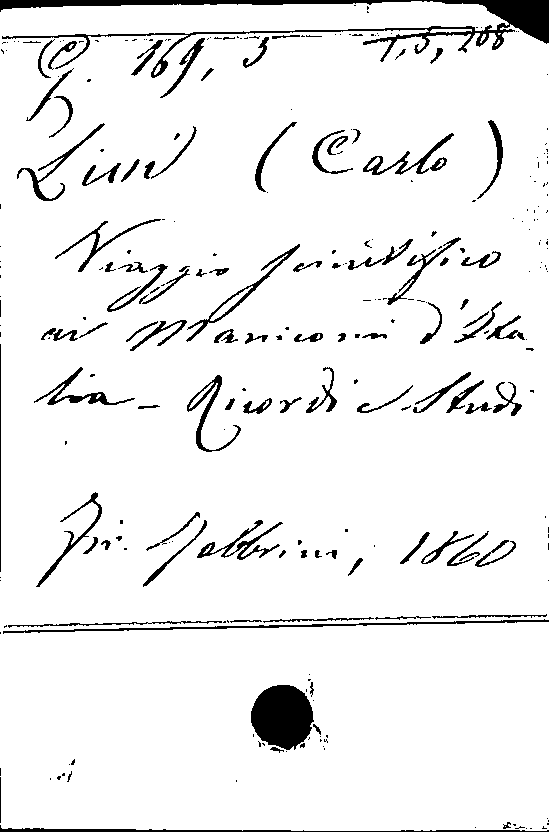 G. 169, 3 1, 5, 208
Livi (Carlo)
Viaggio scientifico
ai Manicomi d'Ita-
lia - Ricordi e Studi
Fir. Fabbrini, 1860